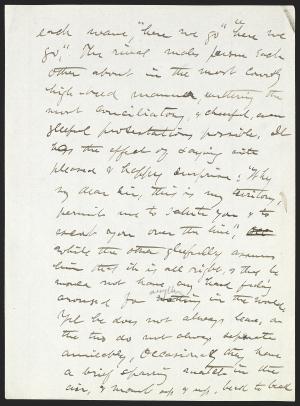 each wave, "here we go" "here we
go," The rival males pursue each
other about in the most courtly
high-bred manner, uttering the
most conciliatory, & cheerful, even
gleeful protestations possible. It
has the effect of saying with
pleased & happy surprise; "Why
my dear Sir, this is my territory,
permit me to salute you & to
escort you over the line",
while the other gleefully assures
him that it is all right, & that he
would not have any hard feelin'
aroused for anything in the world.
Yet he does not always leave, &
the two do not always separate
amicably. Occasionally they have
a brief sparring match in the
air, & mount up & up, beak to beak